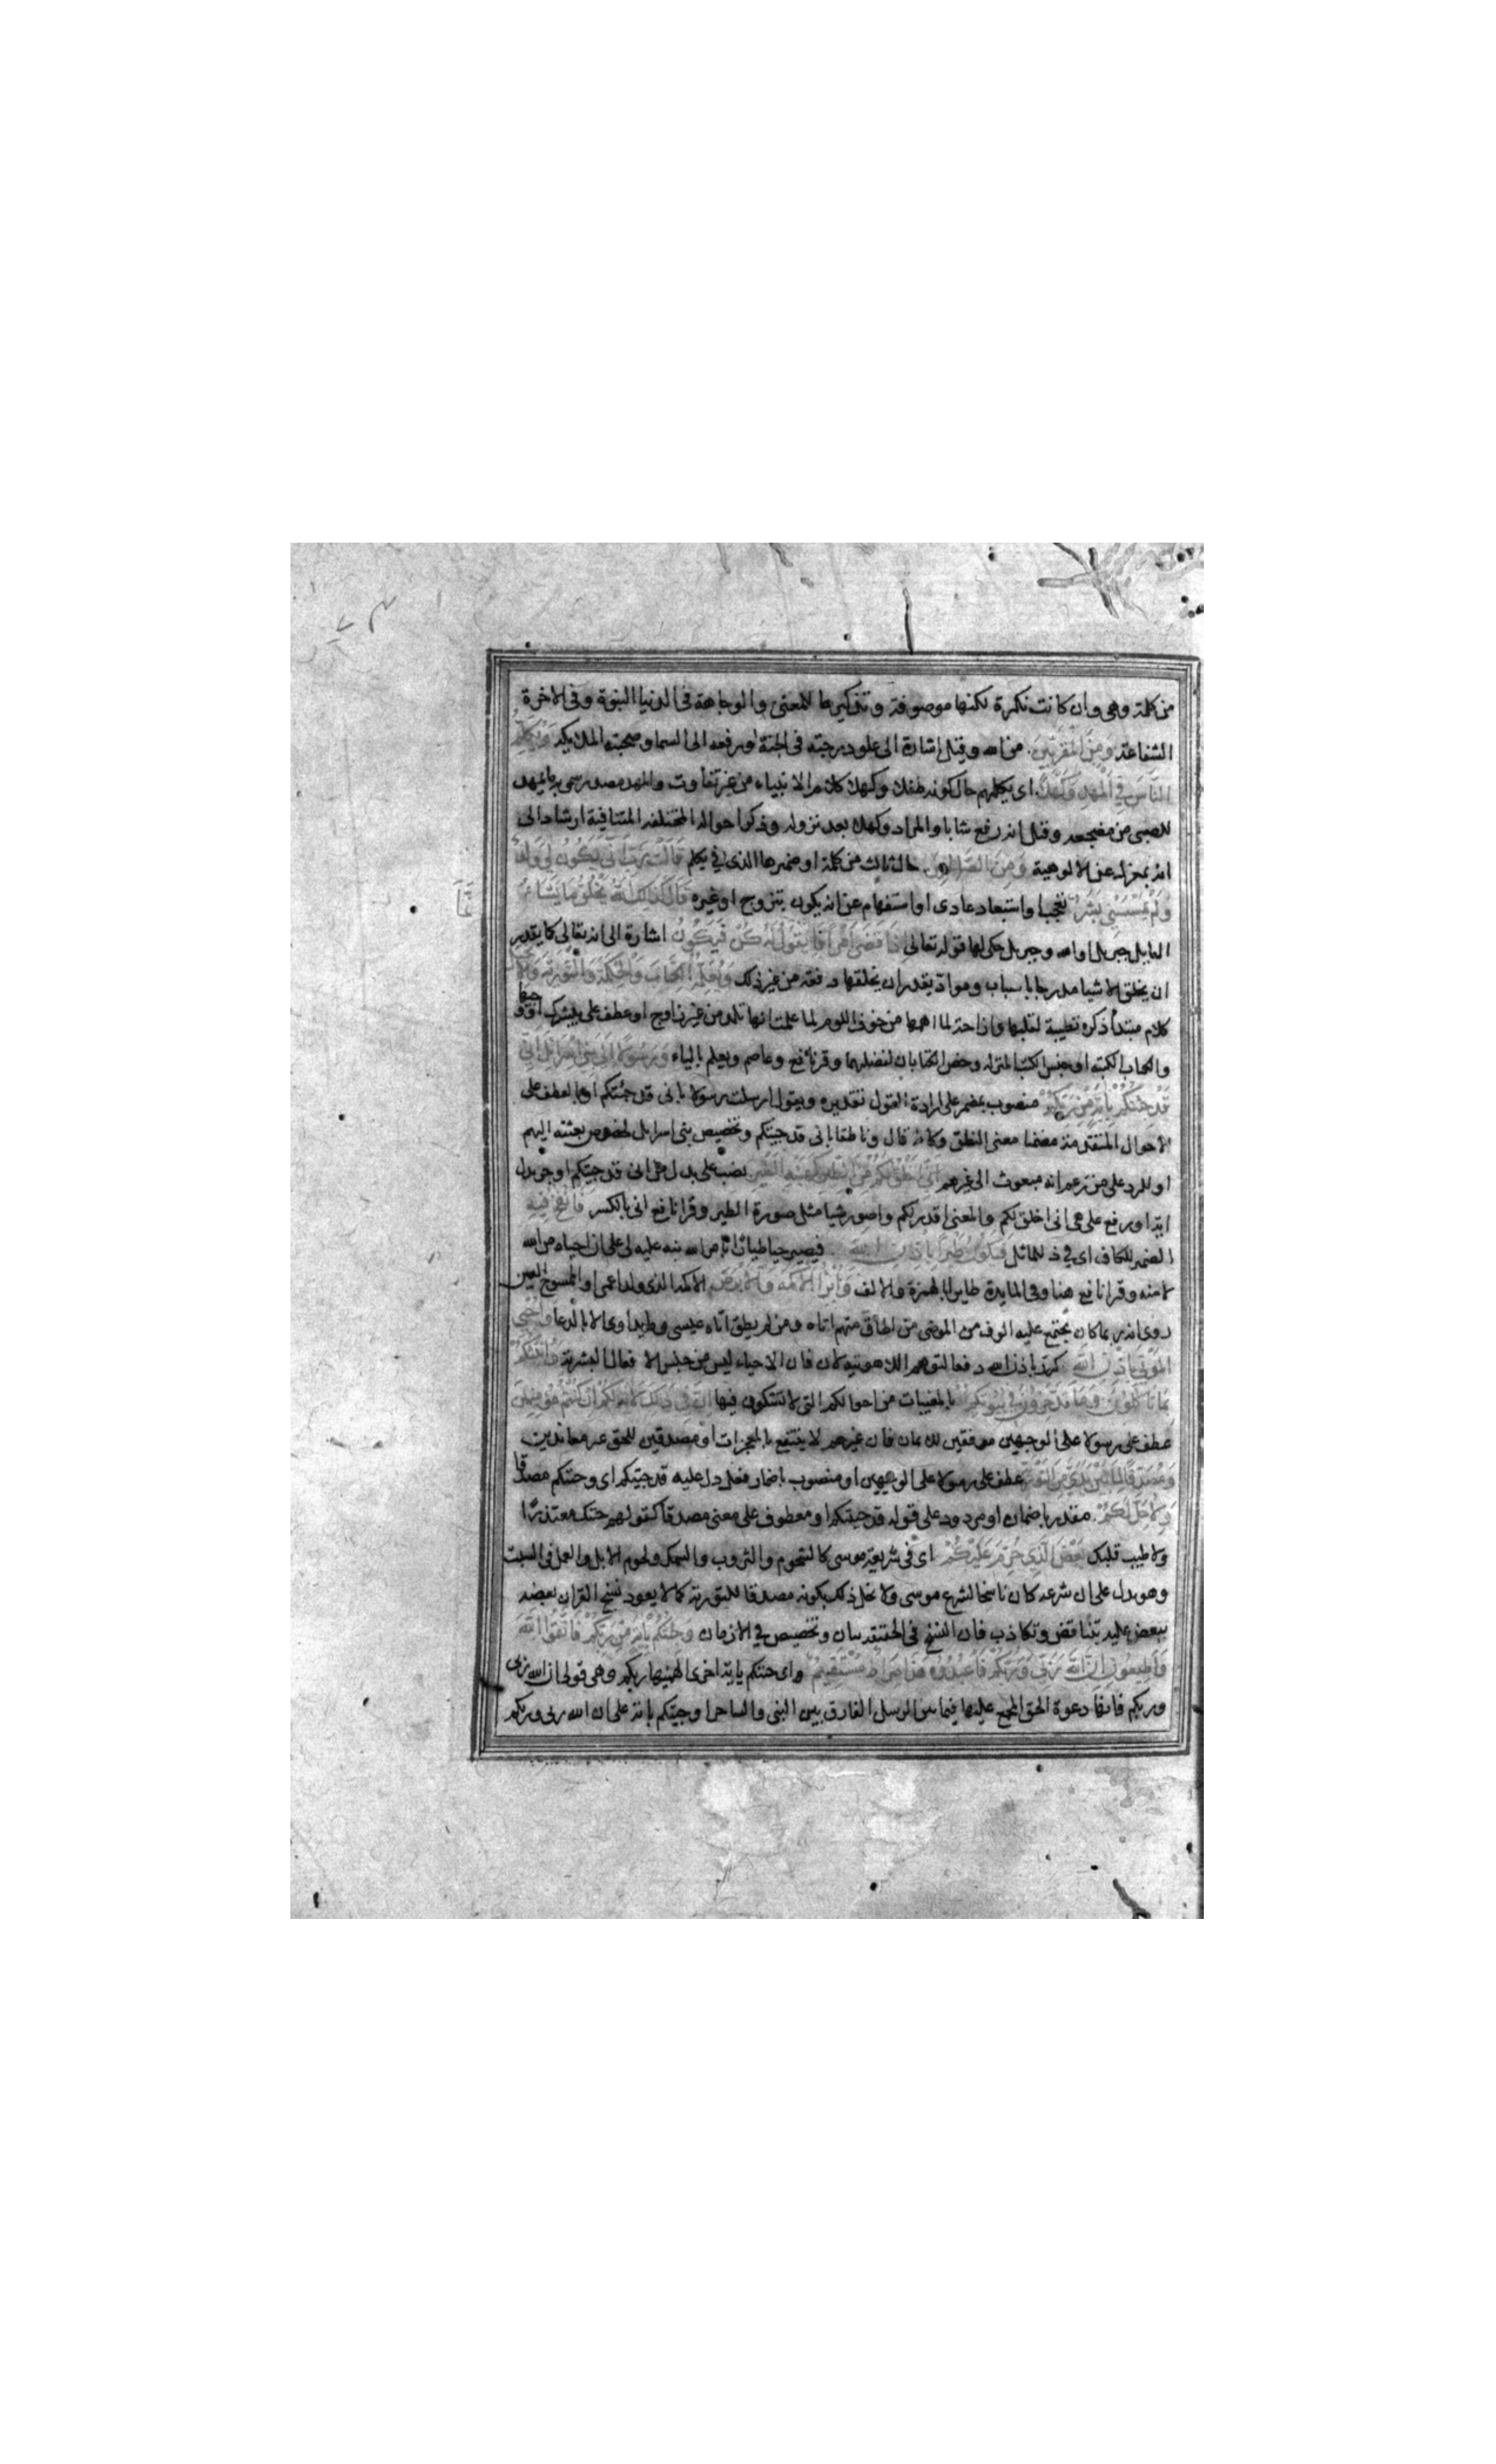 من كلمة وهى وان كانت نكرة لكنها موصوفة وتذكيرها للمعنى والوجاهة فى الدنيا النبوة وفى الاخرة
الشفاعة ومن المقربين من الله وقيل اشارة الى علو درجته فى الجنة او رفعه الى السما وصحبته الملائكة ويكلم
الناس في المهد وكهلا اى يكلمهم حال كونه طفلا وكهلا كلام الانبياء من غير تفاوت والمهد مصدر سمى به ما يمهد
للصبى من مضجعه وقيل انه رفع شابا والمراد وكهلا بعد نزوله وذكر احواله المختلفه المتنافية ارشاد الى
انه بمعزل عن الالوهية ومن الصالحين حال ثالث من كلمة او ضميرها الذى في يكلم قالت رب انى يكون لي ولد
ولم يمسسنى بشر تعجب او استبعاد عادى او استفهام عن انه يكون بتزوج او غيره قال كذلك الله يخلق ما يشاء
القايل جبريل او الله وجبريل حكى لها قوله تعالى اذا قضى امرا فانما يقول له كن فيكون اشارة الى انه تعالى كما يقدر
ان يخلق الاشيا مدرجا باسباب ومواد يقدر ان يخلقها دفعة من غير ذلك ويعلمه الكتاب والحكمة والتورية والانجيل
كلام مبتدأ ذكره تطييبا لقلبها وازاحة لما اهمها من خوف اللوم لما علمت انها تلد من غير زوج او عطف على يبشرك او وجيها
والكتاب الكتبة او جنس الكتب المنزلة وخص الكتابان لفضلهما وقرأ نافع وعاصم ويعلم بالياء ورسولا الى بنى اسرائيل انى
قد جئتكم بآية من ربكم منصوب بمضمر على ارادة القول تقديره ويقول ارسلت رسولا بانى قد جئتكم او بالعطف على
الاحوال المتقدمة مضمنا معنى النطق وكانه قال وناطقا بانى قد جيتكم وتخصيص بنى اسرايل لخصوص بعثته اليهم
او للرد على من زعم انه مبعوث الى غيرهم انى اخلق لكم من الطين كهيئة الطير نصب على بدل من انى قد جيتكم او جر بدل
اية او رفع على هى انى اخلق لكم والمعنى اقدر لكم واصور شيا مثل صورة الطير وقرا نافع انى بالكسر فانفخ فيه
الضمير للكاف اى في ذلك المماثل فيكون طيرا باذن الله فيصير حيا طيارا بامر الله نبه عليه لى على ان احياه من الله
لا منه وقرا نافع هنا وفى المايدة طايرا بالهمزة والالف وابرئ الاكمه والابرص الاكمه الذى ولد اعمى او الممسوح العين
روى انه ربما كان يجتمع عليه الوف من المرضى من اطاق منهم اتاه ومن لم يطق اتاه عيسى وما يداوى الا بالدعا واحيي
الموتى باذن الله كرر باذن الله دفعا لتوهم اللاهوتية فان الاحياء ليس من جنس الافعال البشرية وانبئكم
بما تاكلون وما تدخرون في بيوتكم بالمغيبات من احوالكم التى لا تشكون فيها ان في ذلك لاية لكم ان كنتم مومنين
موفقين للايمان فان غيرهم لا ينتفع بالمعجزات او مصدقين للحق غير معاندين
ومصدقا لما بين يدي من التورية عطف على رسولا على الوجهين او منصوب باضمار فعل دل عليه قد جيتكم اى وجئتكم مصدقا
ولاحل لكم مقدر باضمار او مردود على قوله قد جيتكم او معطوف على معنى مصدقا كقولهم جئتك معتذرا
ولاطيب قلبك بعض الذي حرم عليكم اى فى شريعة موسى كالشحوم والثروب والسمك ولحوم الابل والعمل فى السبت
وهو يدل على ان شرعه كان ناسخا لشرع موسى ولا يخل ذلك بكونه مصدقا للتورية كما لا يعود نسخ القران بعضه
ببعض عليه بتناقض وتكاذب فان النسخ فى الحقيقة بيان وتخصيص في الازمان وجئتكم بآية من ربكم فاتقوا الله
واطيعون ان الله ربي وربكم فاعبدوه هذا صراط مستقيم اى جئتكم باية اخرى الهمنيها ربكم وهى قولى ان الله ربى
وربكم فانها دعوة الحق المجمع عليها فيما بين الرسل الفارق بين النبى والساحر او جيتكم باية على ان الله ربى وربكم